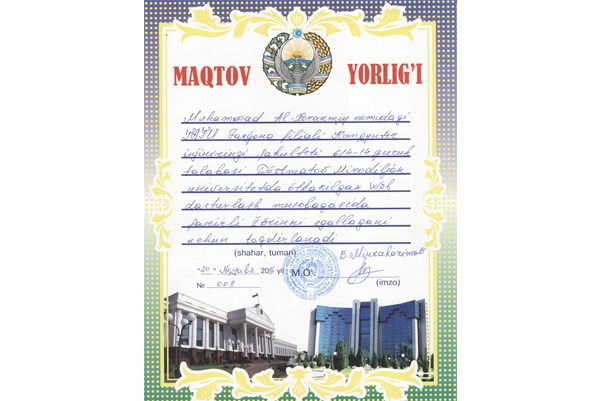 MAQTOV YORLIG'I
Muhammad Al-Xorazmiy nomidagi
TATU Farg'ona filiali Kompyuter
injiniringi fakulteti 614-14 guruh
talabasi Do'stmatov Mirodiljon
universitetda o'tkazilgan Web
dasturlash musobaqasida
faxrli I o'rinni egallagani
uchun taqdirlanadi
(shahar, tuman)
"20" 2015 yil M.O'.
(imzo)
№ 008